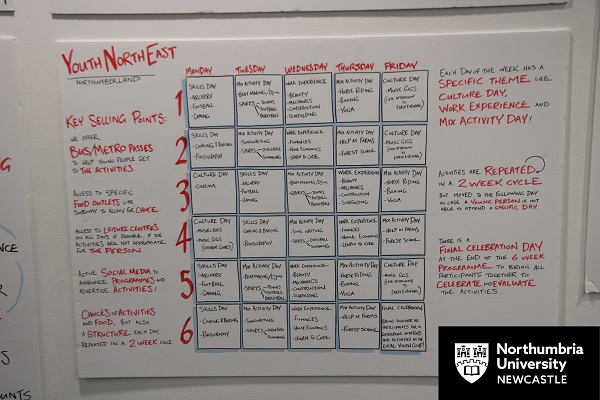 Youth North East
Northumberland
Key Selling Points:
We offer
Bus/Metro Passes
to help young people get
to the activities.
Access to specific
Food Outlets like
Subway to allow for choice.
Access to Leisure Centres
on all days if possible, if the
activities are not appropriate
for the person
Active Social Media to
announce programmes and
advertise activities!
Choices of activities
and food, but also
a structure each day,
repeated in a 2 week cycle
Monday Tuesday Wednesday Thursday Friday
1
Skills Day
- Archery
- Football
- Caning
Mix Activity Day
- Sports
Work Experience
- Beauty
- Mechanics
- Construction
- Scaffolding
Mix Activity Day
- Horse Riding
- Boxing
- Yoga
Culture Day
- Music Gigs
2
Skills Day
- Photography
Mix Activity Day
- Songwriting
- Sports
Work Experience
- Finances
- Home Economics
- Learn to Code
Mix Activity Day
- Help at Farms
- Forest School
Culture Day
- Music Gigs
3
Culture Day
- Cinema
Skills Day
- Archery
- Football
- Caning
Mix Activity Day
- Sports
Work Experience
- Beauty
- Mechanics
- Construction
- Scaffolding
Mix Activity Day
- Horse Riding
- Boxing
- Yoga
4
Culture Day
- Music Gigs
Skills Day
- Photography
Mix Activity Day
- Song writing
- Sports
Work Experience
- Finances
- Home Economics
- Learn to Code
Mix Activity Day
- Help at Farms
- Forest School
5
Skills Day
- Archery
- Football
- Caning
Mix Activity Day
- Sports
Work Experience
- Beauty
- Mechanics
- Construction
- Scaffolding
Mix Activity Day
- Horse Riding
- Boxing
- Yoga
Culture Day
- Music Gigs
6
Skills Day
- Photography
Mix Activity Day
- Songwriting
- Sports
Work Experience
- Finances
- Home Economics
- Learn to Code
Mix Activity Day
- Help at Farms
- Forest School
Final Celebration
Each day of the week has a
specific theme i.e.
Culture Day,
Work Experience and
Mix Activity Day!
Activities are repeated
in a 2 week cycle
but moved to the following day
in case a young person is not
able to attend a specific day
There is a
Final Celebration Day
at the end of the 6 week
programme to bring all
participants together to
celebrate and evaluate
the activities.
Northumbria
University
NEWCASTLE